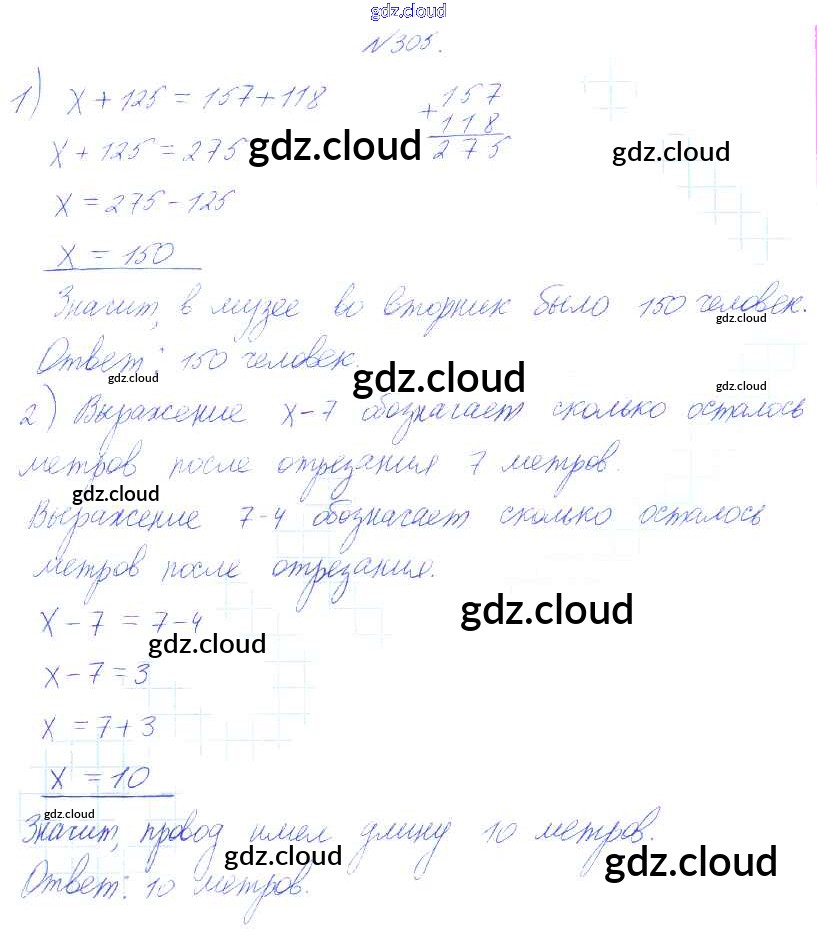 gdz.cloud
№305.
1) x + 125 = 157 + 118
157
+
118
275
x + 125 = 275
gdz.cloud
gdz.cloud
x = 275 - 125
x = 150
Значит, в музее во вторник было 150 человек.
gdz.cloud
Ответ: 150 человек.
gdz.cloud
gdz.cloud
gdz.cloud
2) Выражение x-7 обозначает сколько осталось
метров после отрезания 7 метров.
gdz.cloud
Выражение 7-4 обозначает сколько осталось
метров после отрезания.
x - 7 = 7-4
gdz.cloud
gdz.cloud
x - 7 = 3
x = 7 + 3
x = 10
gdz.cloud
Значит, провод имел длину 10 метров.
gdz.cloud
gdz.cloud
Ответ: 10 метров.